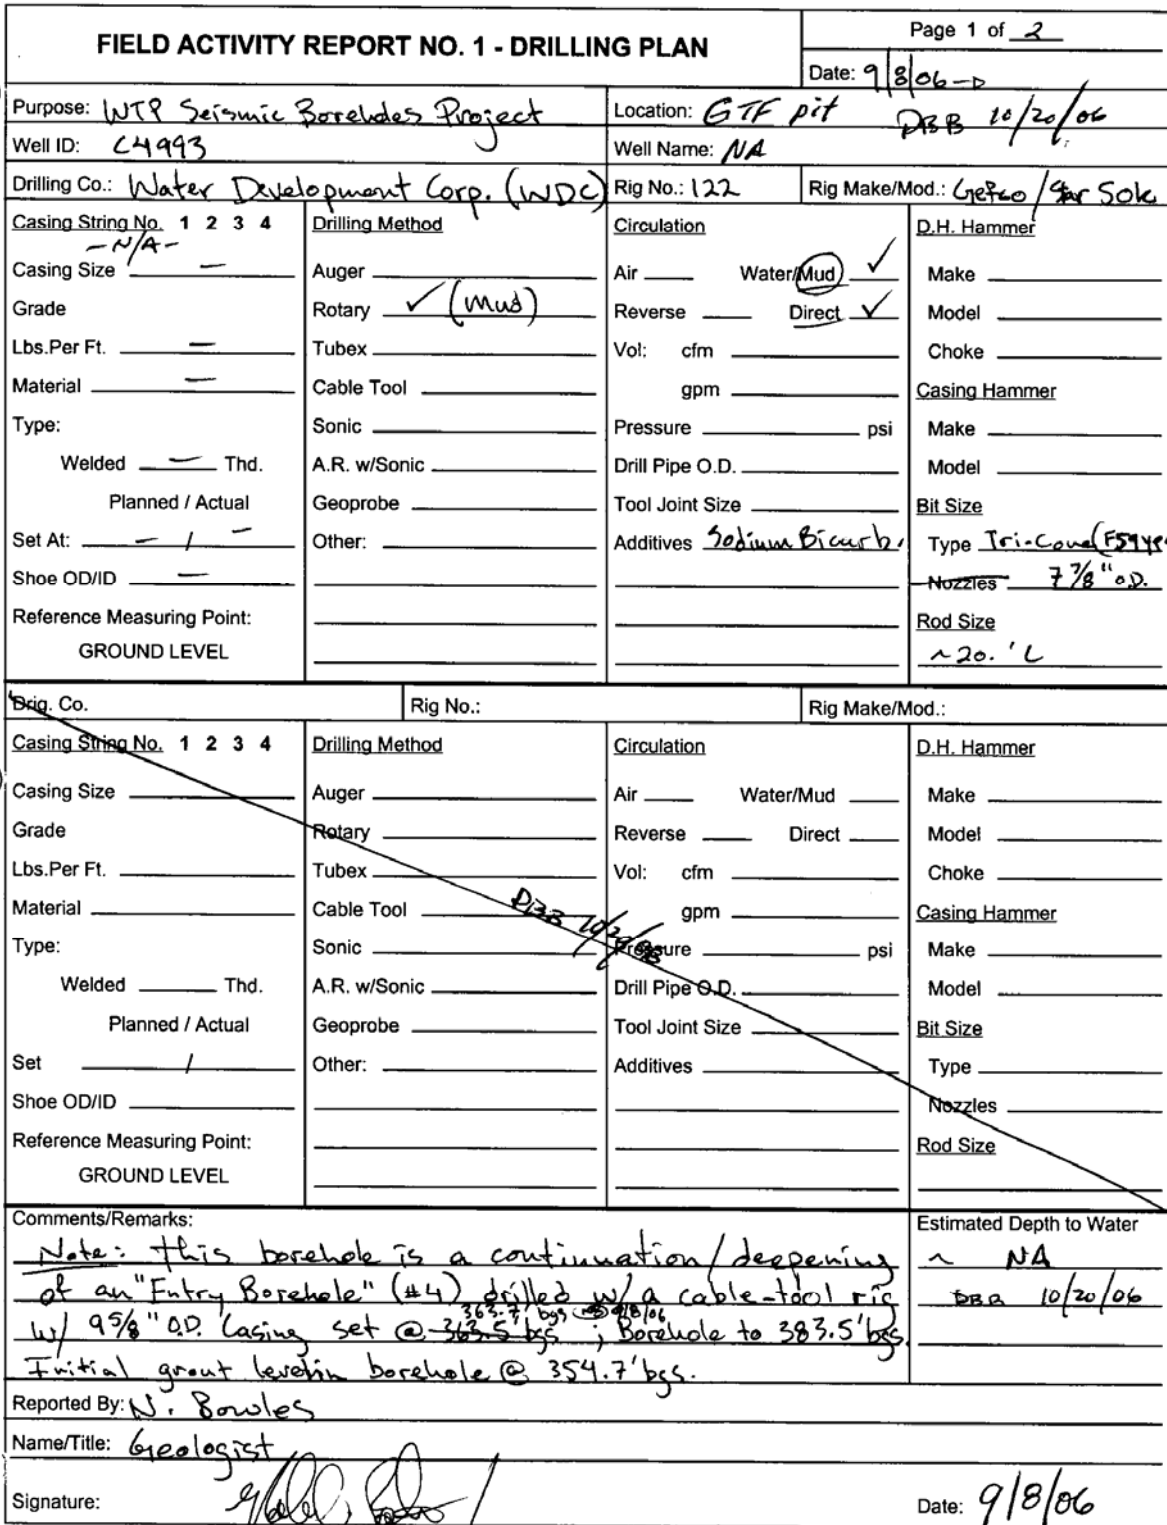 FIELD ACTIVITY REPORT NO. 1 - DRILLING PLAN
Page 1 of 2
Date: 9/8/06
DBB 10/20/06
Purpose: WTP Seismic Boreholes Project
Location: GTF pit
Well ID: C4993
Well Name: NA
Drilling Co.: Water Development Corp. (WDC)
Rig No.: 122
Rig Make/Mod.: Gefco / Star 50K
Casing String No. 1 2 3 4
- N/A -
Casing Size —
Grade
Lbs.Per Ft. —
Material —
Type:
Welded — Thd.
Planned / Actual
Set At: — / —
Shoe OD/ID —
Reference Measuring Point:
GROUND LEVEL
Drilling Method
Auger
Rotary ✓ (Mud)
Tubex
Cable Tool
Sonic
A.R. w/Sonic
Geoprobe
Other:
Circulation
Air Water/Mud ✓
Reverse Direct ✓
Vol: cfm
gpm
Pressure psi
Drill Pipe O.D.
Tool Joint Size
Additives Sodium Bicarb.
D.H. Hammer
Make
Model
Choke
Casing Hammer
Make
Model
Bit Size
Type Tri-Cone
Nozzles 7 7/8" O.D.
Rod Size
~20.' L
Drig. Co.
Rig No.:
Rig Make/Mod.:
Casing String No. 1 2 3 4
Casing Size
Grade
Lbs.Per Ft.
Material
Type:
Welded Thd.
Planned / Actual
Set /
Shoe OD/ID
Reference Measuring Point:
GROUND LEVEL
Drilling Method
Auger
Rotary
Tubex
Cable Tool
Sonic
A.R. w/Sonic
Geoprobe
Other:
DBB 10/20/06
Circulation
Air Water/Mud
Reverse Direct
Vol: cfm
gpm
Pressure psi
Drill Pipe O.D.
Tool Joint Size
Additives
D.H. Hammer
Make
Model
Choke
Casing Hammer
Make
Model
Bit Size
Type
Nozzles
Rod Size
Comments/Remarks:
Note: this borehole is a continuation/deepening
of an "Entry Borehole" (#4) drilled w/ a cable-tool rig
363.7' bgs 9/8/06
w/ 9 5/8" O.D. Casing set @ 363.5' bgs ; Borehole to 383.5' bgs.
Initial grout level in borehole @ 354.7' bgs.
Estimated Depth to Water
~ NA
DBB 10/20/06
Reported By: N. Bowles
Name/Title: Geologist
Signature:
Date: 9/8/06